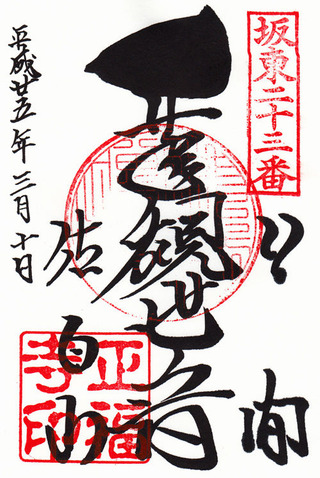 坂東二十三番
観世音
佐白山
平成廿五年三月十日
正福寺印